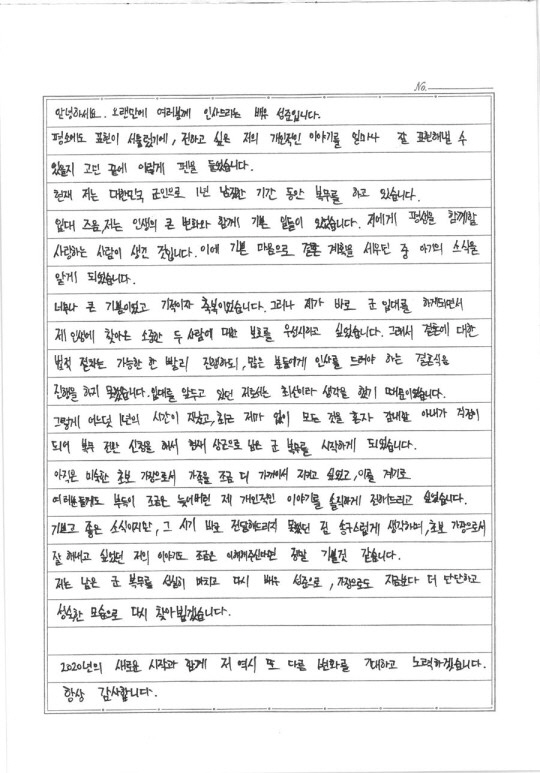 No.
안녕하세요. 오랜만에 여러분께 인사드리는 배우 성준입니다.
평소에도 표현이 서툴렀기에, 전하고 싶은 저의 개인적인 이야기를 얼마나 잘 표현해낼 수
있을지 고민 끝에 이렇게 펜을 들었습니다.
현재 저는 대한민국 군인으로 1년 남짓한 기간 동안 복무를 하고 있습니다.
입대 즈음,저는 인생의 큰 변화와 함께 기쁜 일들이 있었습니다. 저에게 평생을 함께할
사랑하는 사람이 생긴 것입니다. 이에 기쁜 마음으로 결혼 계획을 세우던 중 아기의 소식을
알게 되었습니다.
너무나 큰 기쁨이었고 기적이자 축복이었습니다. 그러나 제가 바로 군 입대를 하게되면서
제 인생에 찾아온 소중한 두 사람에 대한 보호를 우선시하고 싶었습니다. 그래서 결혼에 대한
법적 절차는 가능한 한 빨리 진행하되, 많은 분들에게 인사를 드려야 하는 결혼식을
진행을 하지 못했습니다. 입대를 앞두고 있던 저로서는 최선이라 생각을 했기 때문이었습니다.
그렇게 어느덧 1년의 시간이 지났고, 최근 저마 없이 모든 것을 혼자 감내할 아내가 걱정이
되어 복무 전환 신청을 해서 현재 상근으로 남은 군 복무를 시작하게 되었습니다.
아직은 미숙한 초보 가장으로서 가족을 조금 더 가까이서 지키고 싶었고, 이를 계기로
여러분들께도 부득이 조금은 늦어버린 제 개인적인 이야기를 솔직하게 전해드리고 싶었습니다.
기쁘고 좋은 소식이지만, 그 시기 바로 전달해드리지 못했던 점 송구스럽게 생각하며, 초보 가장으로서
잘 해내고 싶었던 저의 이야기도 조금은 이해해주신다면 정말 기쁠것 같습니다.
저는 남은 군 복무를 성실히 마치고 다시 배우 성준으로, 가장으로도 지금보다 더 단단하고
성숙한 모습으로 다시 찾아뵙겠습니다.
2020년의 새로운 시작과 함께 저 역시 또 다른 변화를 기대하고 노력하겠습니다.
항상 감사합니다.